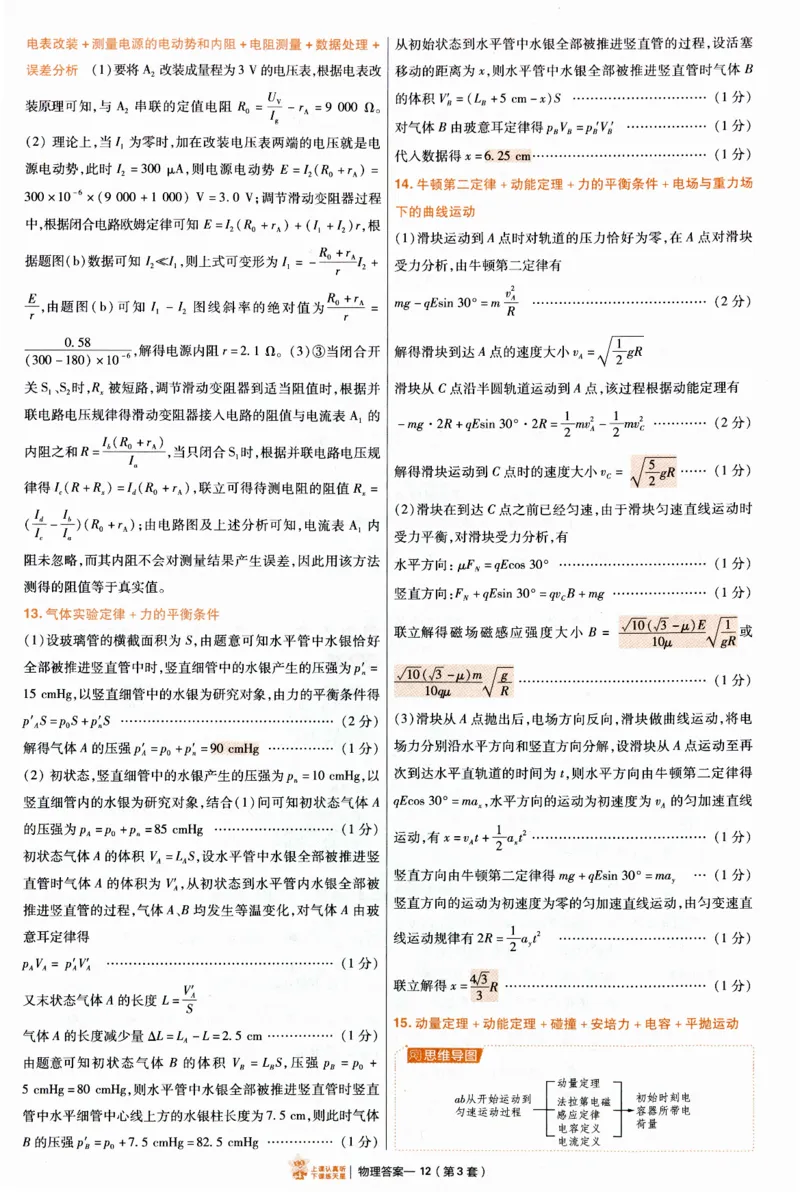 电表改装+测量电源的电动势和内阻+电阻测量+数据处理+
误差分析 (1)要将 A₂ 改装成量程为 3 V 的电压表,根据电表改
装原理可知,与 A₂ 串联的定值电阻 R₀ = U_V/I_g − r_A = 9 000 Ω。
(2) 理论上,当 I₁ 为零时,加在改装电压表两端的电压就是电
源电动势,此时 I₂ = 300 μA,则电源电动势 E = I₂(R₀ + r_A) =
300 × 10⁻⁶ × (9 000 + 1 000) V = 3.0 V;调节滑动变阻器过程
中,根据闭合电路欧姆定律可知 E = I₂(R₀ + r_A) + (I₁ + I₂)r,根
据题图(b)数据可知 I₂≪I₁,则上式可变形为 I₁ = −(R₀ + r_A)/r I₂ +
E/r,由题图(b)可知 I₁ − I₂ 图线斜率的绝对值为 (R₀ + r_A)/r =
0.58/((300 − 180) × 10⁻⁶),解得电源内阻 r = 2.1 Ω。(3)③当闭合开
关 S₁、S₂时,Rₓ 被短路,调节滑动变阻器到适当阻值时,根据并
联电路电压规律得滑动变阻器接入电路的阻值与电流表 A₁ 的
内阻之和 R = I_b(R₀ + r_A)/I_a,当只闭合 S₁时,根据并联电路电压规
律得 I_c(R + Rₓ) = I_d(R₀ + r_A),联立可得待测电阻的阻值 Rₓ =
(I_d/I_c − I_b/I_a)(R₀ + r_A);由电路图及上述分析可知,电流表 A₁ 内
阻未忽略,而其内阻不会对测量结果产生误差,因此用该方法
测得的阻值等于真实值。
13.气体实验定律+力的平衡条件
(1)设玻璃管的横截面积为 S,由题意可知水平管中水银恰好
全部被推进竖直管中时,竖直细管中的水银产生的压强为 p′ₙ =
15 cmHg,以竖直细管中的水银为研究对象,由力的平衡条件得
p′_A S = p₀S + p′ₙS …………………………………… (2 分)
解得气体 A 的压强 p′_A = p₀ + p′ₙ = 90 cmHg ………… (1 分)
(2) 初状态,竖直细管中的水银产生的压强为 pₙ = 10 cmHg,以
竖直细管内的水银为研究对象,结合(1)问可知初状态气体 A
的压强为 p_A = p₀ + pₙ = 85 cmHg …………………… (1 分)
初状态气体 A 的体积 V_A = L_A S,设水平管中水银全部被推进竖
直管时气体 A 的体积为 V′_A,从初状态到水平管内水银全部被
推进竖直管的过程,气体 A、B 均发生等温变化,对气体 A 由玻
意耳定律得
p_A V_A = p′_A V′_A …………………………………… (1 分)
又末状态气体 A 的长度 L = V′_A/S
气体 A 的长度减少量 ΔL = L_A − L = 2.5 cm …………… (1 分)
由题意可知初状态气体 B 的体积 V_B = L_B S,压强 p_B = p₀ +
5 cmHg = 80 cmHg,则水平管中水银全部被推进竖直管时竖直
管中水平细管中心线上方的水银柱长度为 7.5 cm,则此时气体
B 的压强 p′_B = p₀ + 7.5 cmHg = 82.5 cmHg ………… (1 分)
从初始状态到水平管中水银全部被推进竖直管的过程,设活塞
移动的距离为 x,则水平管中水银全部被推进竖直管时气体 B
的体积 V′_B = (L_B + 5 cm − x)S …………………… (1 分)
对气体 B 由玻意耳定律得 p_B V_B = p′_B V′_B …………… (1 分)
代入数据得 x = 6.25 cm………………………… (1 分)
14.牛顿第二定律+动能定理+力的平衡条件+电场与重力场
下的曲线运动
(1)滑块运动到 A 点时对轨道的压力恰好为零,在 A 点对滑块
受力分析,由牛顿第二定律有
mg − qEsin 30° = m v_A²/R ………………………… (2 分)
解得滑块到达 A 点的速度大小 v_A = √(1/2 gR)
滑块从 C 点沿半圆轨道运动到 A 点,该过程根据动能定理有
−mg · 2R + qEsin 30° · 2R = 1/2 mv_A² − 1/2 mv_C² ………… (2 分)
解得滑块运动到 C 点时的速度大小 v_C = √(5/2 gR) …… (1 分)
(2)滑块在到达 C 点之前已经匀速,由于滑块匀速直线运动时
受力平衡,对滑块受力分析,有
水平方向: μF_N = qEcos 30° ……………………… (1 分)
竖直方向:F_N + qEsin 30° = qv_C B + mg ……………… (1 分)
联立解得磁场磁感应强度大小 B = √10(√3 − μ)E/10μ √(1/gR) 或
√10(√3 − μ)m/10qμ √(g/R) ……………………………… (1 分)
(3)滑块从 A 点抛出后,电场方向反向,滑块做曲线运动,将电
场力分别沿水平方向和竖直方向分解,设滑块从 A 点运动至再
次到达水平直轨道的时间为 t,则水平方向由牛顿第二定律得
qEcos 30° = maₓ,水平方向的运动为初速度为 v_A 的匀加速直线
运动,有 x = v_A t + 1/2 aₓt² ……………………………… (1 分)
竖直方向由牛顿第二定律得 mg + qEsin 30° = ma_y … (1 分)
竖直方向的运动为初速度为零的匀加速直线运动,由匀变速直
线运动规律有 2R = 1/2 a_y t² ……………………… (1 分)
联立解得 x = 4√3/3 R ……………………………… (1 分)
15.动量定理+动能定理+碰撞+安培力+电容+平抛运动
思维导图
ab从开始运动到
匀速运动过程
动量定理
法拉第电磁
感应定律
电容定义
电流定义
初始时刻电
容器所带电
荷量
上课认真听
下课练天星
物理答案— 12 (第 3 套)